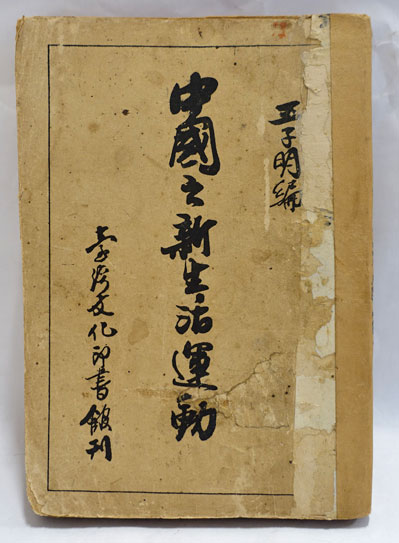 王子明編
中國之新生活運動
文化印書館刊